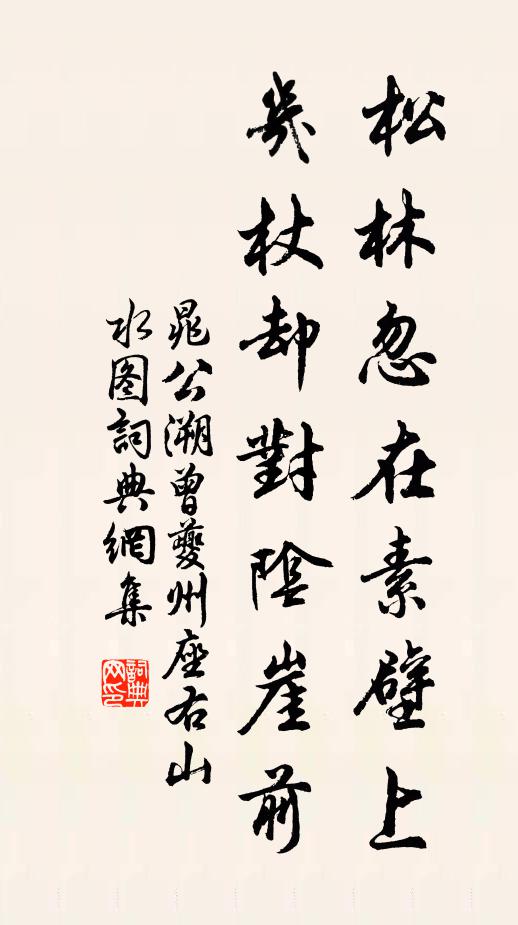 松林忽在素壁上
几杖却對陰崖前
晁公溯曾夔州座右山
水图詞典網集
詞典網印